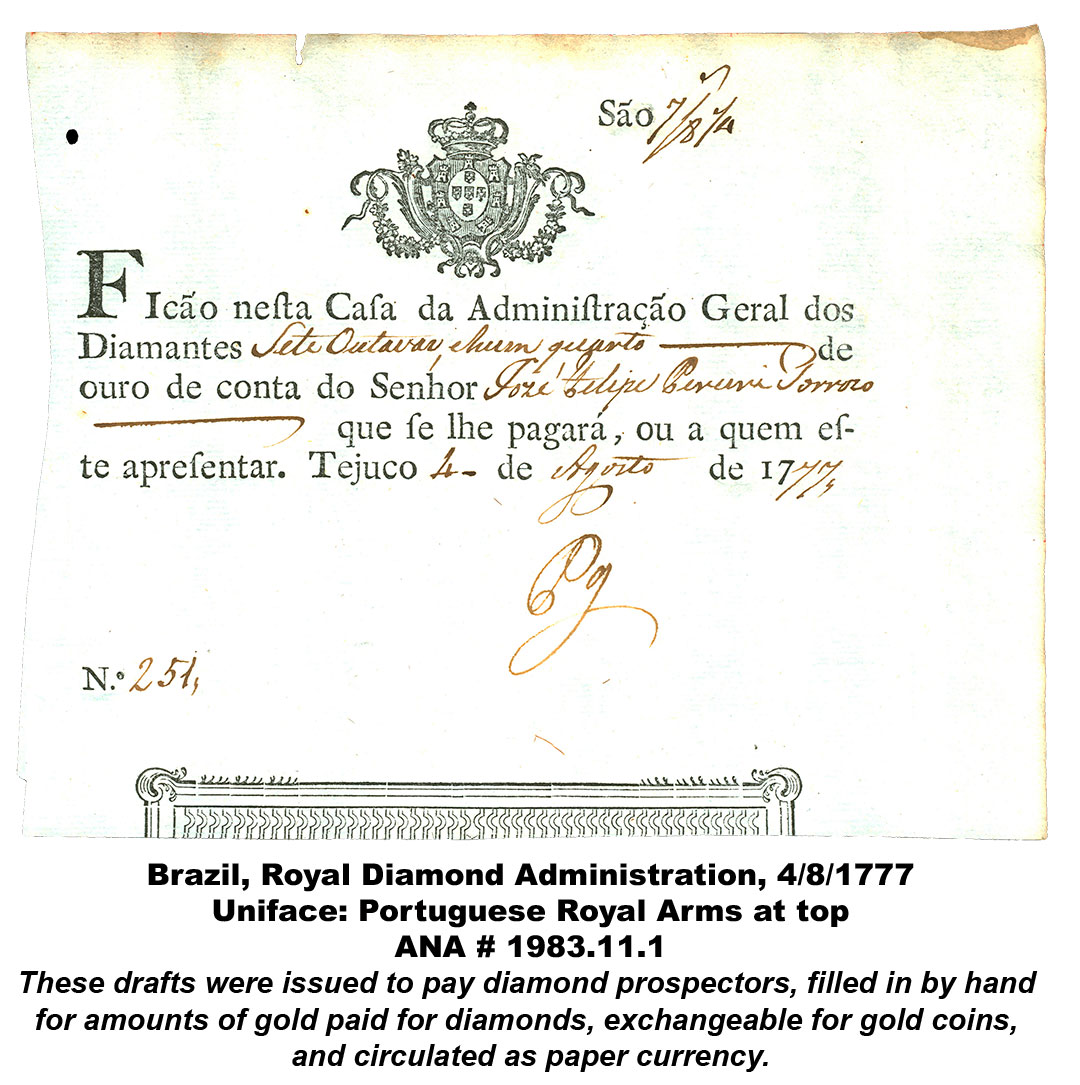 São 7/8
FIcão neſta Caſa da Adminiſtração Geral dos
Diamantes Sete Outavas, ehum quarto de
ouro de conta do Senhor Jozé Felipe
que ſe lhe pagará, ou a quem eſ-
te apreſentar. Tejuco 4 de Agosto de 1777,
N.º 251,
Brazil, Royal Diamond Administration, 4/8/1777
Uniface: Portuguese Royal Arms at top
ANA # 1983.11.1
These drafts were issued to pay diamond prospectors, filled in by hand
for amounts of gold paid for diamonds, exchangeable for gold coins,
and circulated as paper currency.